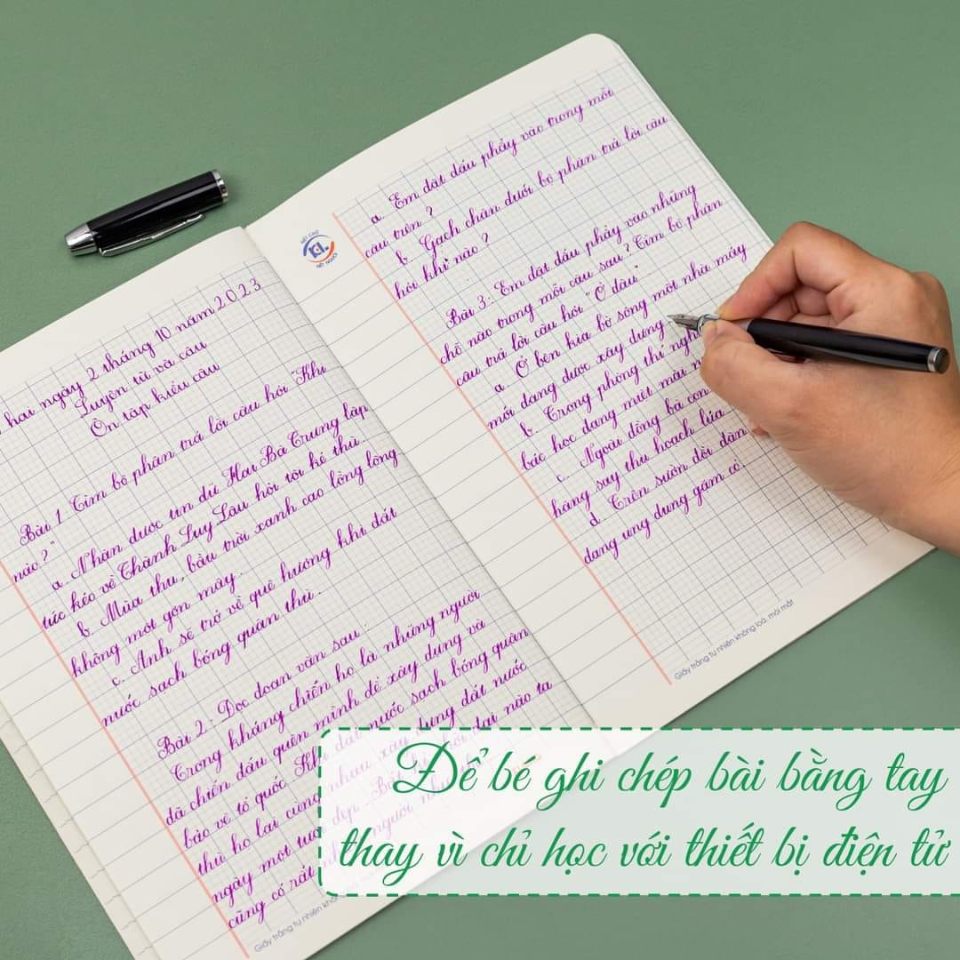 hai ngày 2 tháng 10 năm 2023
Luyện từ và câu
Ôn tập kiểu câu
Bài 1 Tìm bộ phận trả lời câu hỏi "Khi
nào?"
a. Nhận được tin dữ Hai Bà Trưng lập
tức kéo về Thành Luy Lâu hỏi tội kẻ thù.
b. Mùa thu, bầu trời xanh cao lồng lộng
không một gợn mây.
c. Anh sẽ trở về quê hương khi đất
nước sạch bóng quân thù.
Bài 2: Đọc đoạn văn sau:
Trong kháng chiến họ là những người
đã chiến đấu quên mình để xây dựng và
bảo vệ tổ quốc Khi đất nước sạch bóng quân
thù họ lại cùng nhau xây dựng đất nước
ngày một đẹp Bất kì thời đại nào ta
cũng có rất người
Giấy trắng tự nhiên
NÉT CHỮ
NẾT NGƯỜI
a. Em đặt dấu phẩy vào trong mỗi
câu trên?
b. Gạch chân dưới bộ phận trả lời câu
hỏi khi nào?
Bài 3: Em đặt dấu phẩy vào những
chỗ nào trong mỗi câu sau? Tìm bộ phận
câu trả lời câu hỏi "Ở đâu"
a. Ở bên kia bờ sông một nhà máy
mới đang được xây dựng
b. Trong phòng thí
bác học đang miệt mài
c. Ngoài đồng bà con
hăng say thu hoạch lúa
d. Trên sườn đồi đàn
đang ung dung gặm cỏ.
Giấy trắng tự nhiên không loá, mỏi mắt
Để bé ghi chép bài bằng tay
thay vì chỉ học với thiết bị điện tử